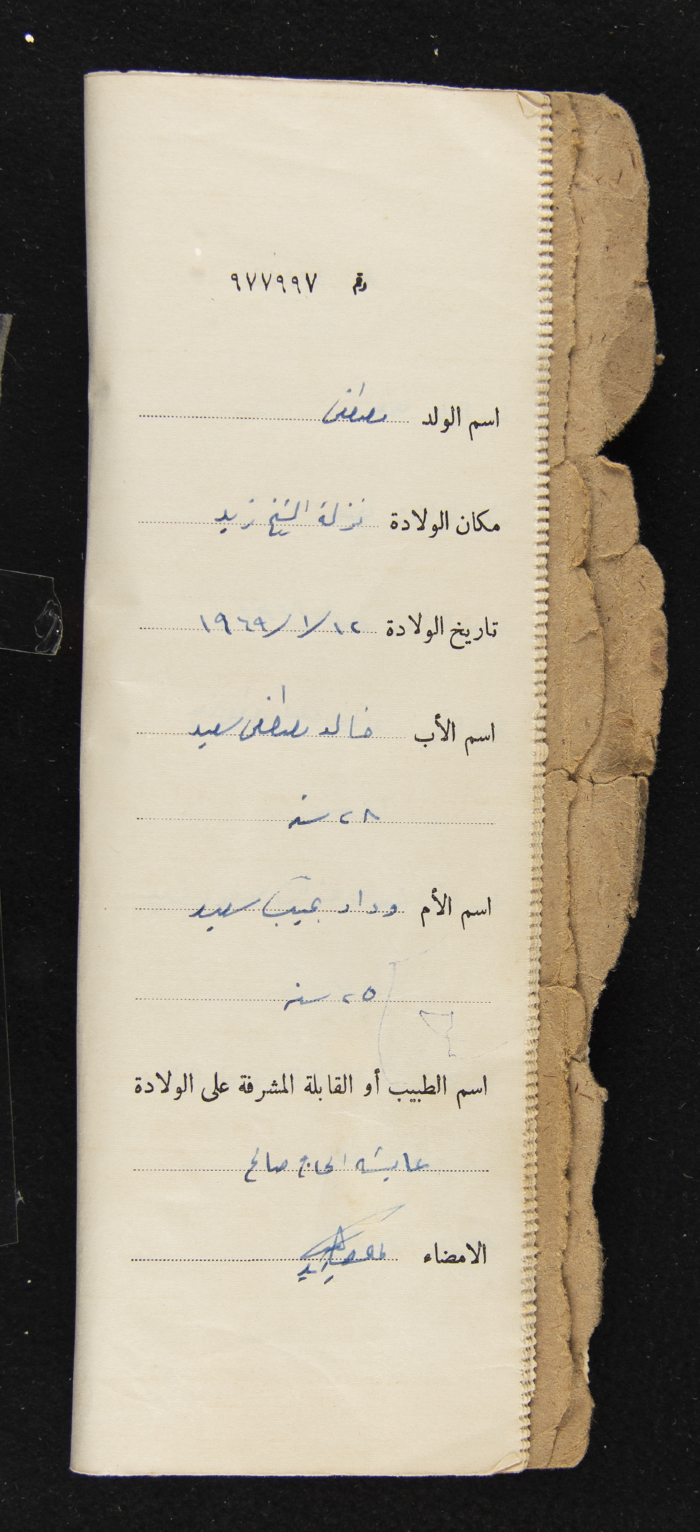 رقم ٩٧٧٩٩٧
اسم الولد مصطفى
مكان الولادة نزلة الشيخ زيد
تاريخ الولادة ١٢/١/١٩٦٩
اسم الأب خالد مصطفى سعيد
٢٨ سنه
اسم الأم وداد نجيب سعيد
٢٥ سنه
اسم الطبيب أو القابلة المشرفة على الولادة
عايشه الحاج صالح
الامضاء